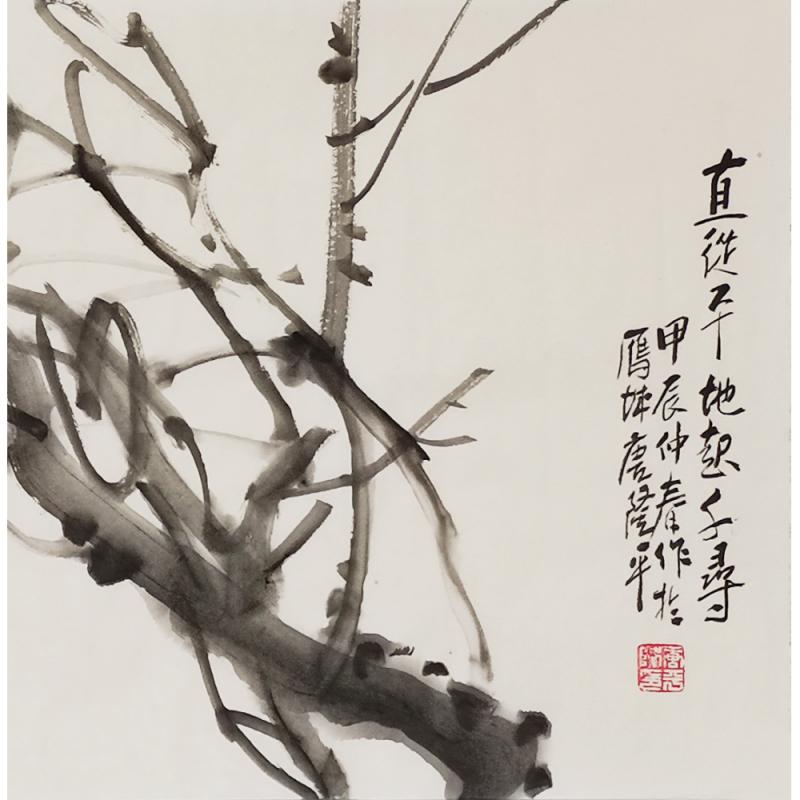 直從平地起千尋
甲辰仲春作於
鴈城唐隆平